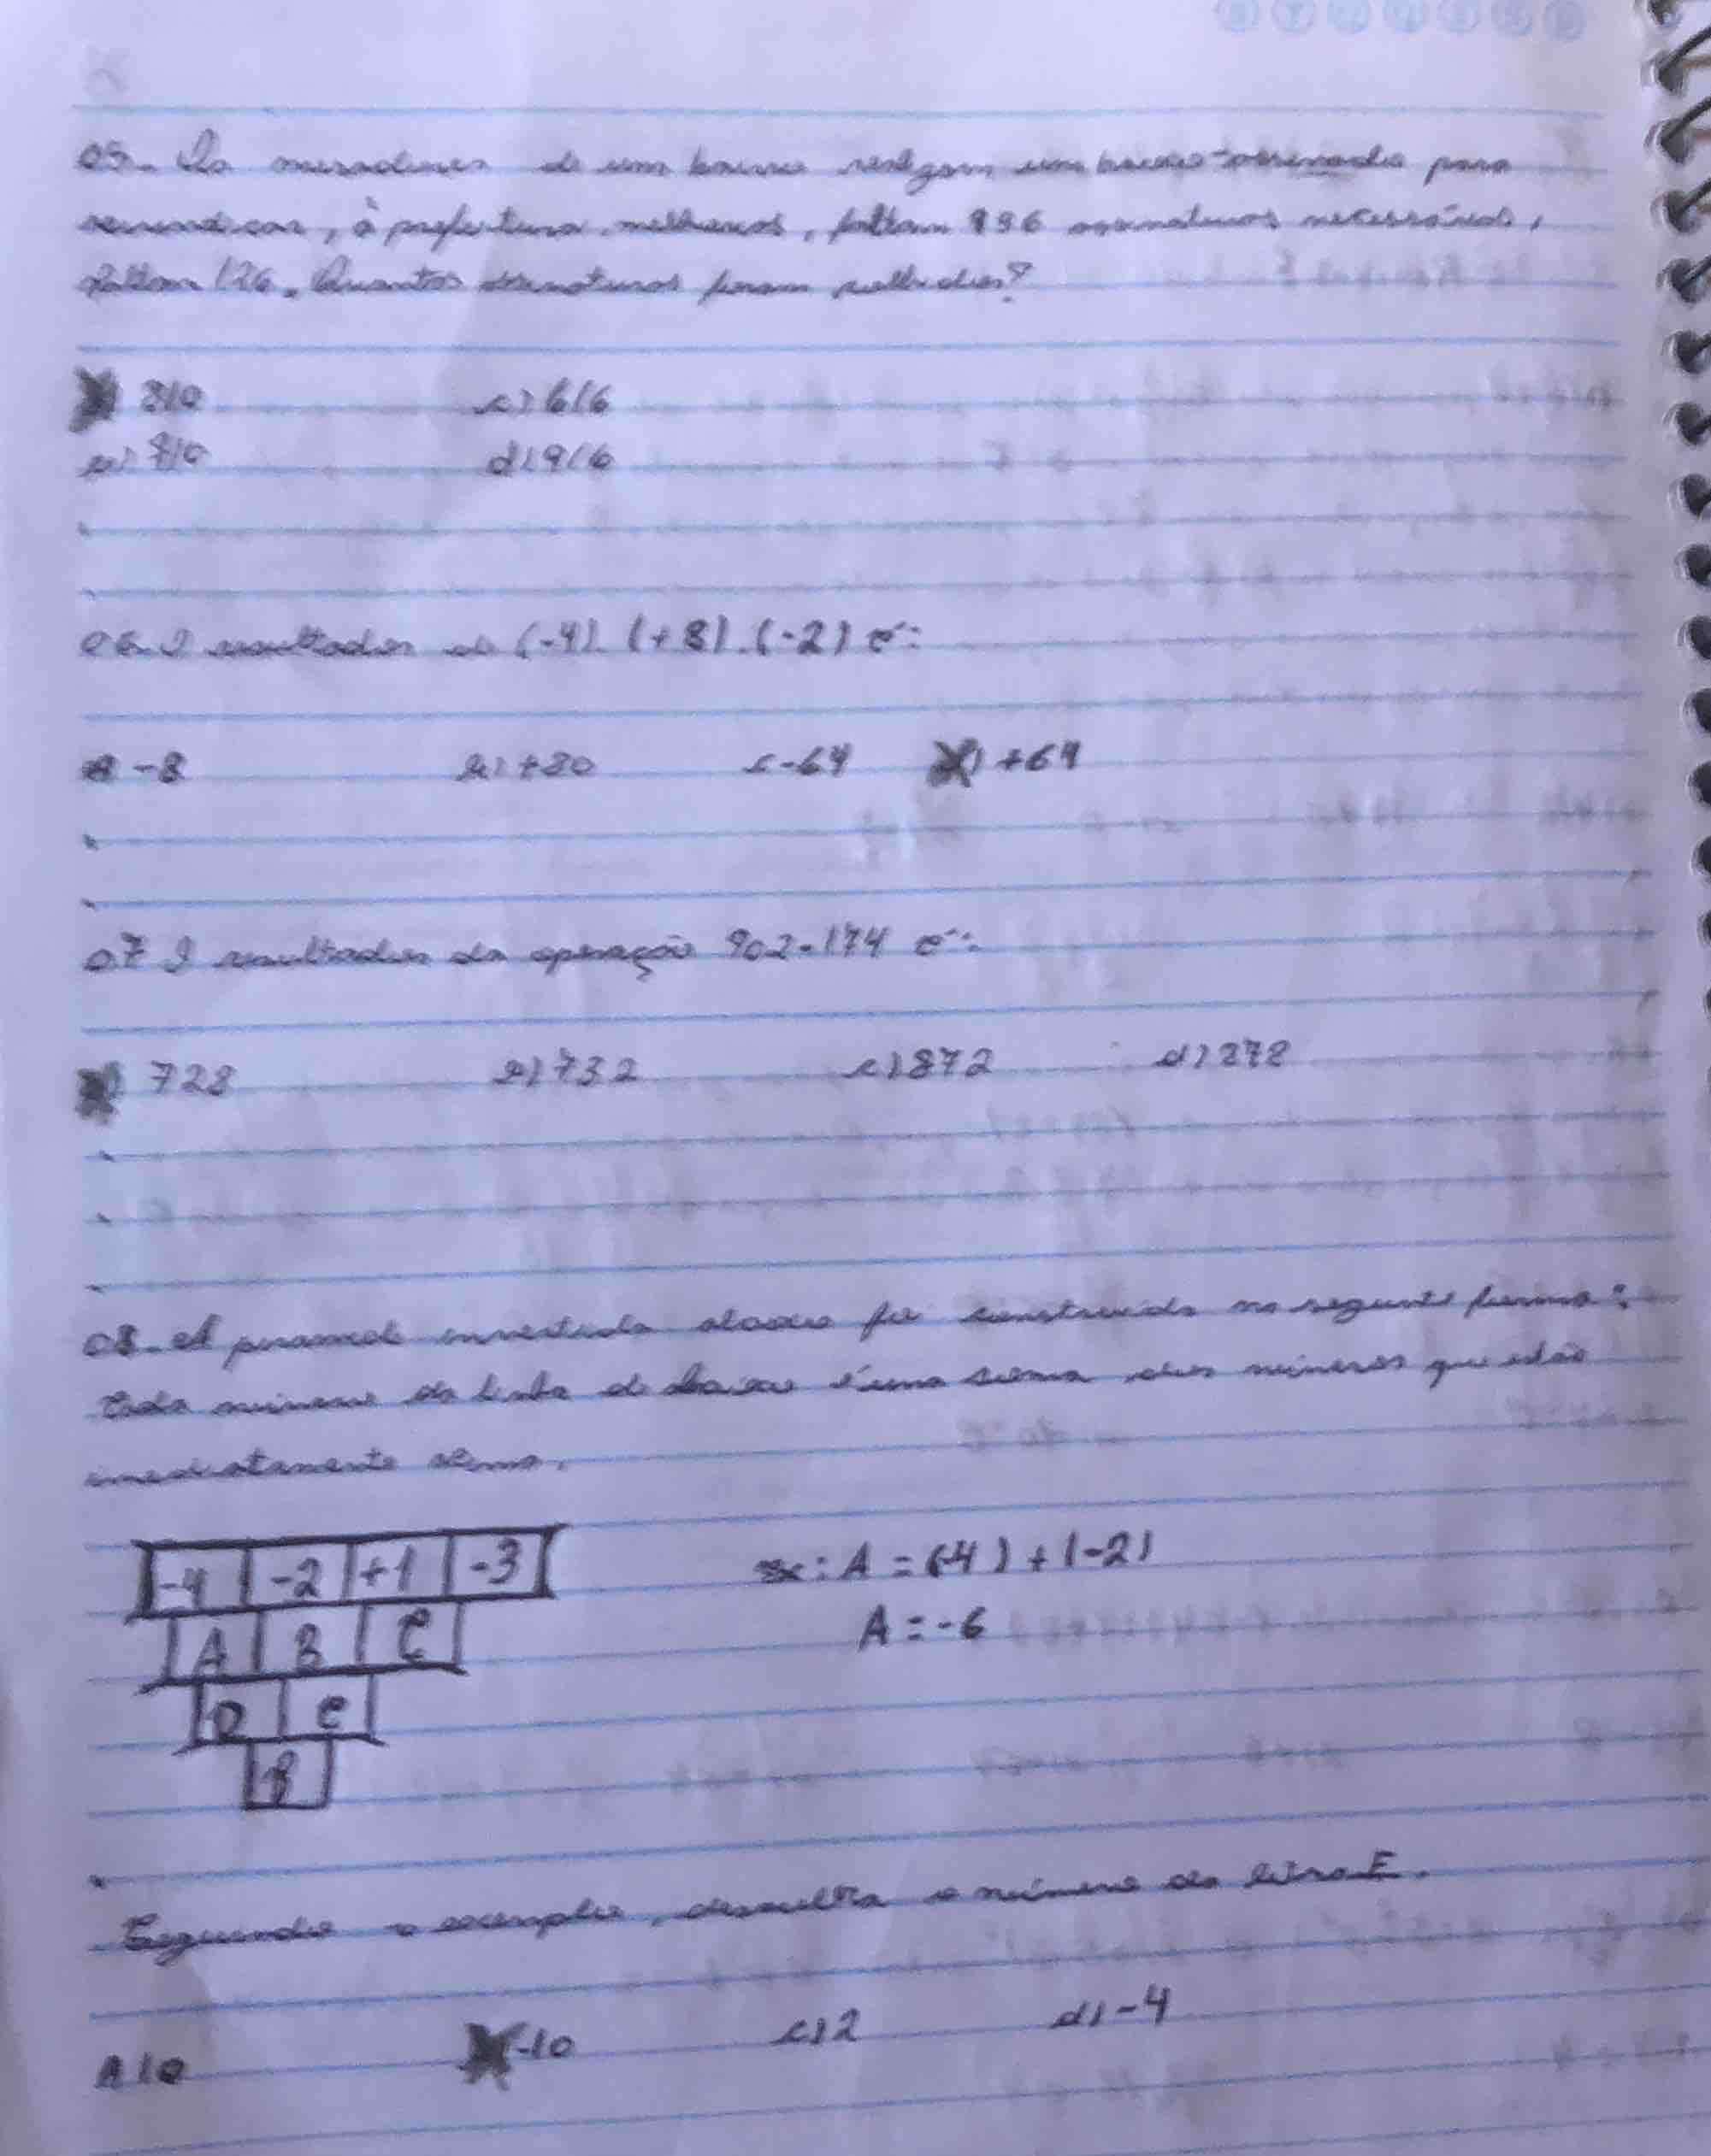 05- Os moradores de um bairro redigem um abaixo-assinado para
reivindicar, à prefeitura melhorias, faltam 936 assinaturas necessárias,
faltam 126. Quantas assinaturas foram colhidas?
810 c) 616
b) 710 d) 916
06- O resultado de (-4). (+8).(-2) é:
-8 b) +80 c -64 +64
07 O resultado da operação 902-174 é:
728 b) 732 c) 872 d) 272
08- A pirâmide invertida abaixo foi construída na seguinte forma:
Cada número da linha de baixo é uma soma dos números que estão
imediatamente acima.
-4 -2 +1 -3
A B C
D e
ex: A = (-4) + (-2)
A = -6
Seguindo o exemplo, descubra o número da letra F.
A 10 -10 c) 2 d) -4